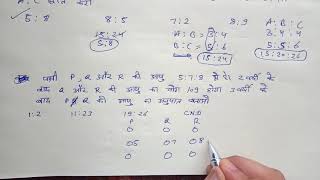 A : C ज्ञात करो
✓ 5:8    8:5    7:2    8:9    A : B : C
15:24    A : B = 3:4    3 : 4 : 4
5:8    B : C = 5:6    5 : 5 : 6
15:24    15:20:24
P, Q और R की आयु 5:7:8 है 2 वर्षों के
बाद Q और R की आयु का योग 109 होगा 3 वर्षों के
बाद P, Q की आयु का अनुपात बताओ
1:2    11:23    19:26    CND
P    Q    R
0    0    0
05    07    08
0    0    0